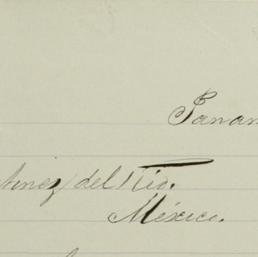 Panam
tinez del Rio.
México.